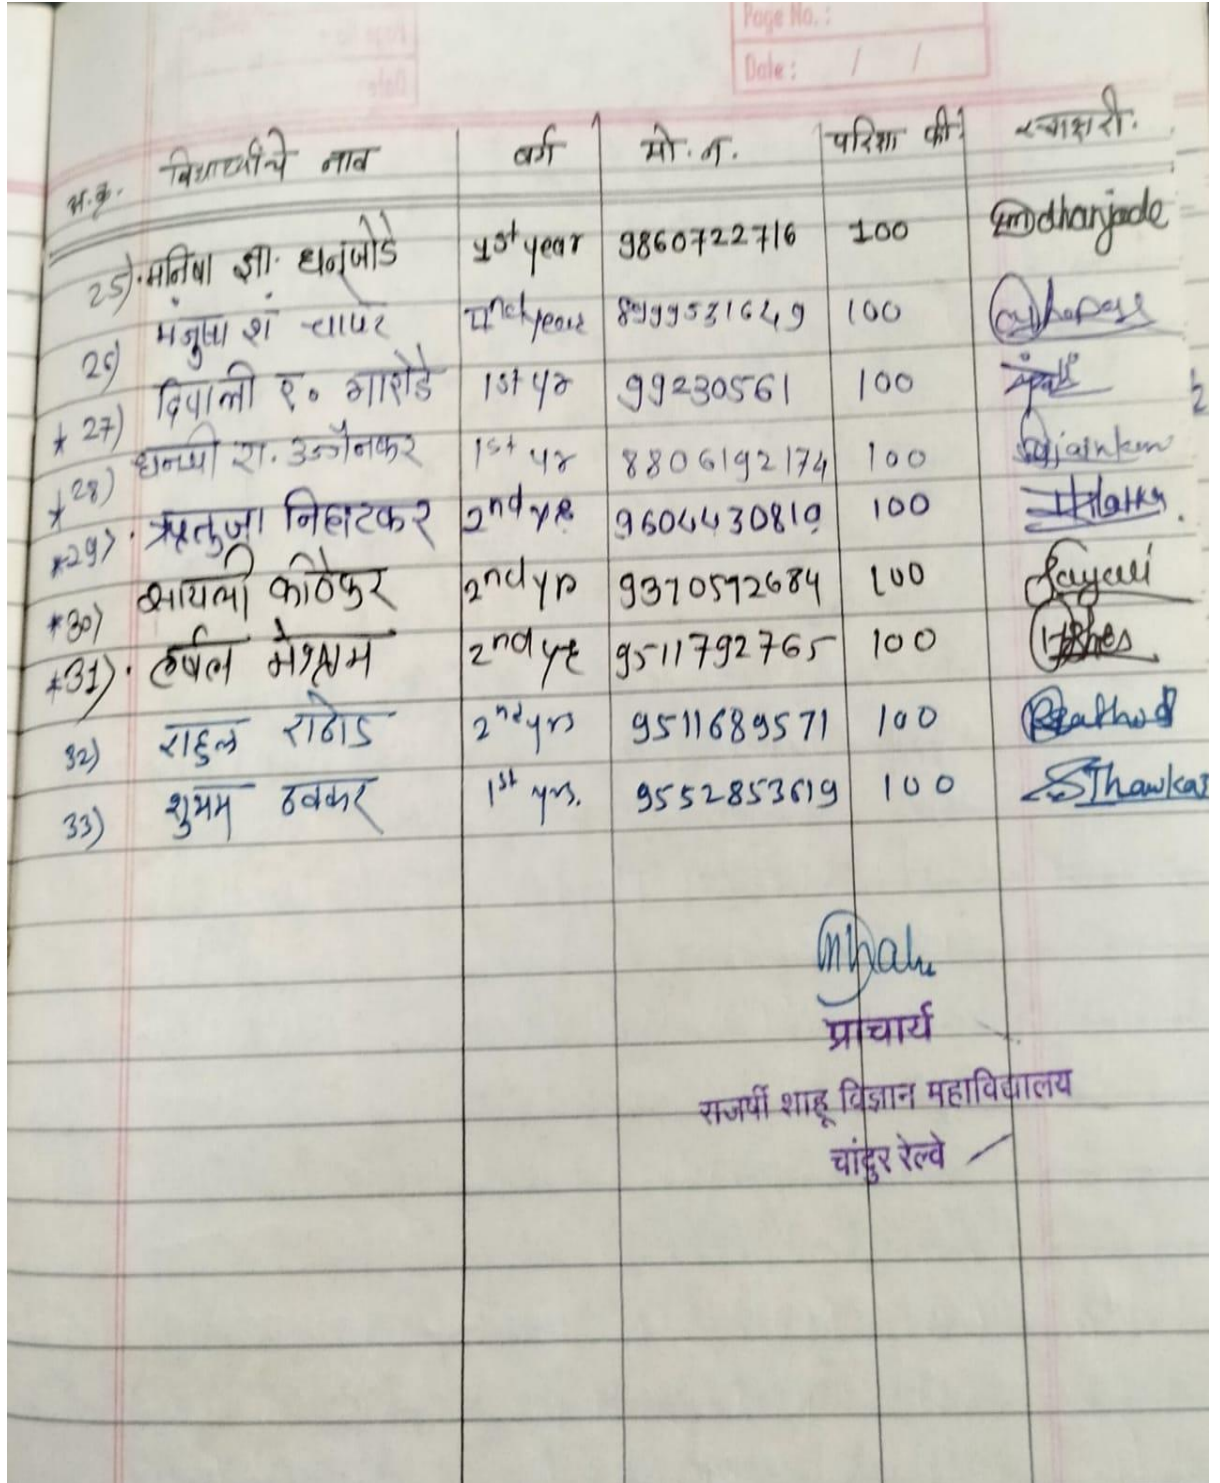 Page No. :
Date : / /
अ.क्र. विद्यार्थ्यांचे नाव वर्ग मो. न. परिक्षा फी. स्वाक्षरी.
25) मनिषा ज्ञा. धनजोडे 1st year 9860722716 100 Dhanjode
26) मंजुषा शं चापरे IInd year 8999531649 100
* 27) दिपाली ए. गारोडे 1st yr 99230561 100
* 28) धनश्री रा. उज्जैनकर 1st yr 8806192174 100 Ujjainkar
* 29) ऋतुजा निहाटकर 2nd yr 9604430819 100
* 30) सायली कोठेकर 2nd yr 9370572684 100 Sayali
* 31) हर्षल मेश्राम 2nd yr 9511792765 100
32) राहुल राठोड 2nd yrs 9511689571 100 Rathod
33) शुभम ठवकर 1st yrs. 9552853619 100 SThawkar
प्राचार्य
राजर्षी शाहू विज्ञान महाविद्यालय
चांदुर रेल्वे